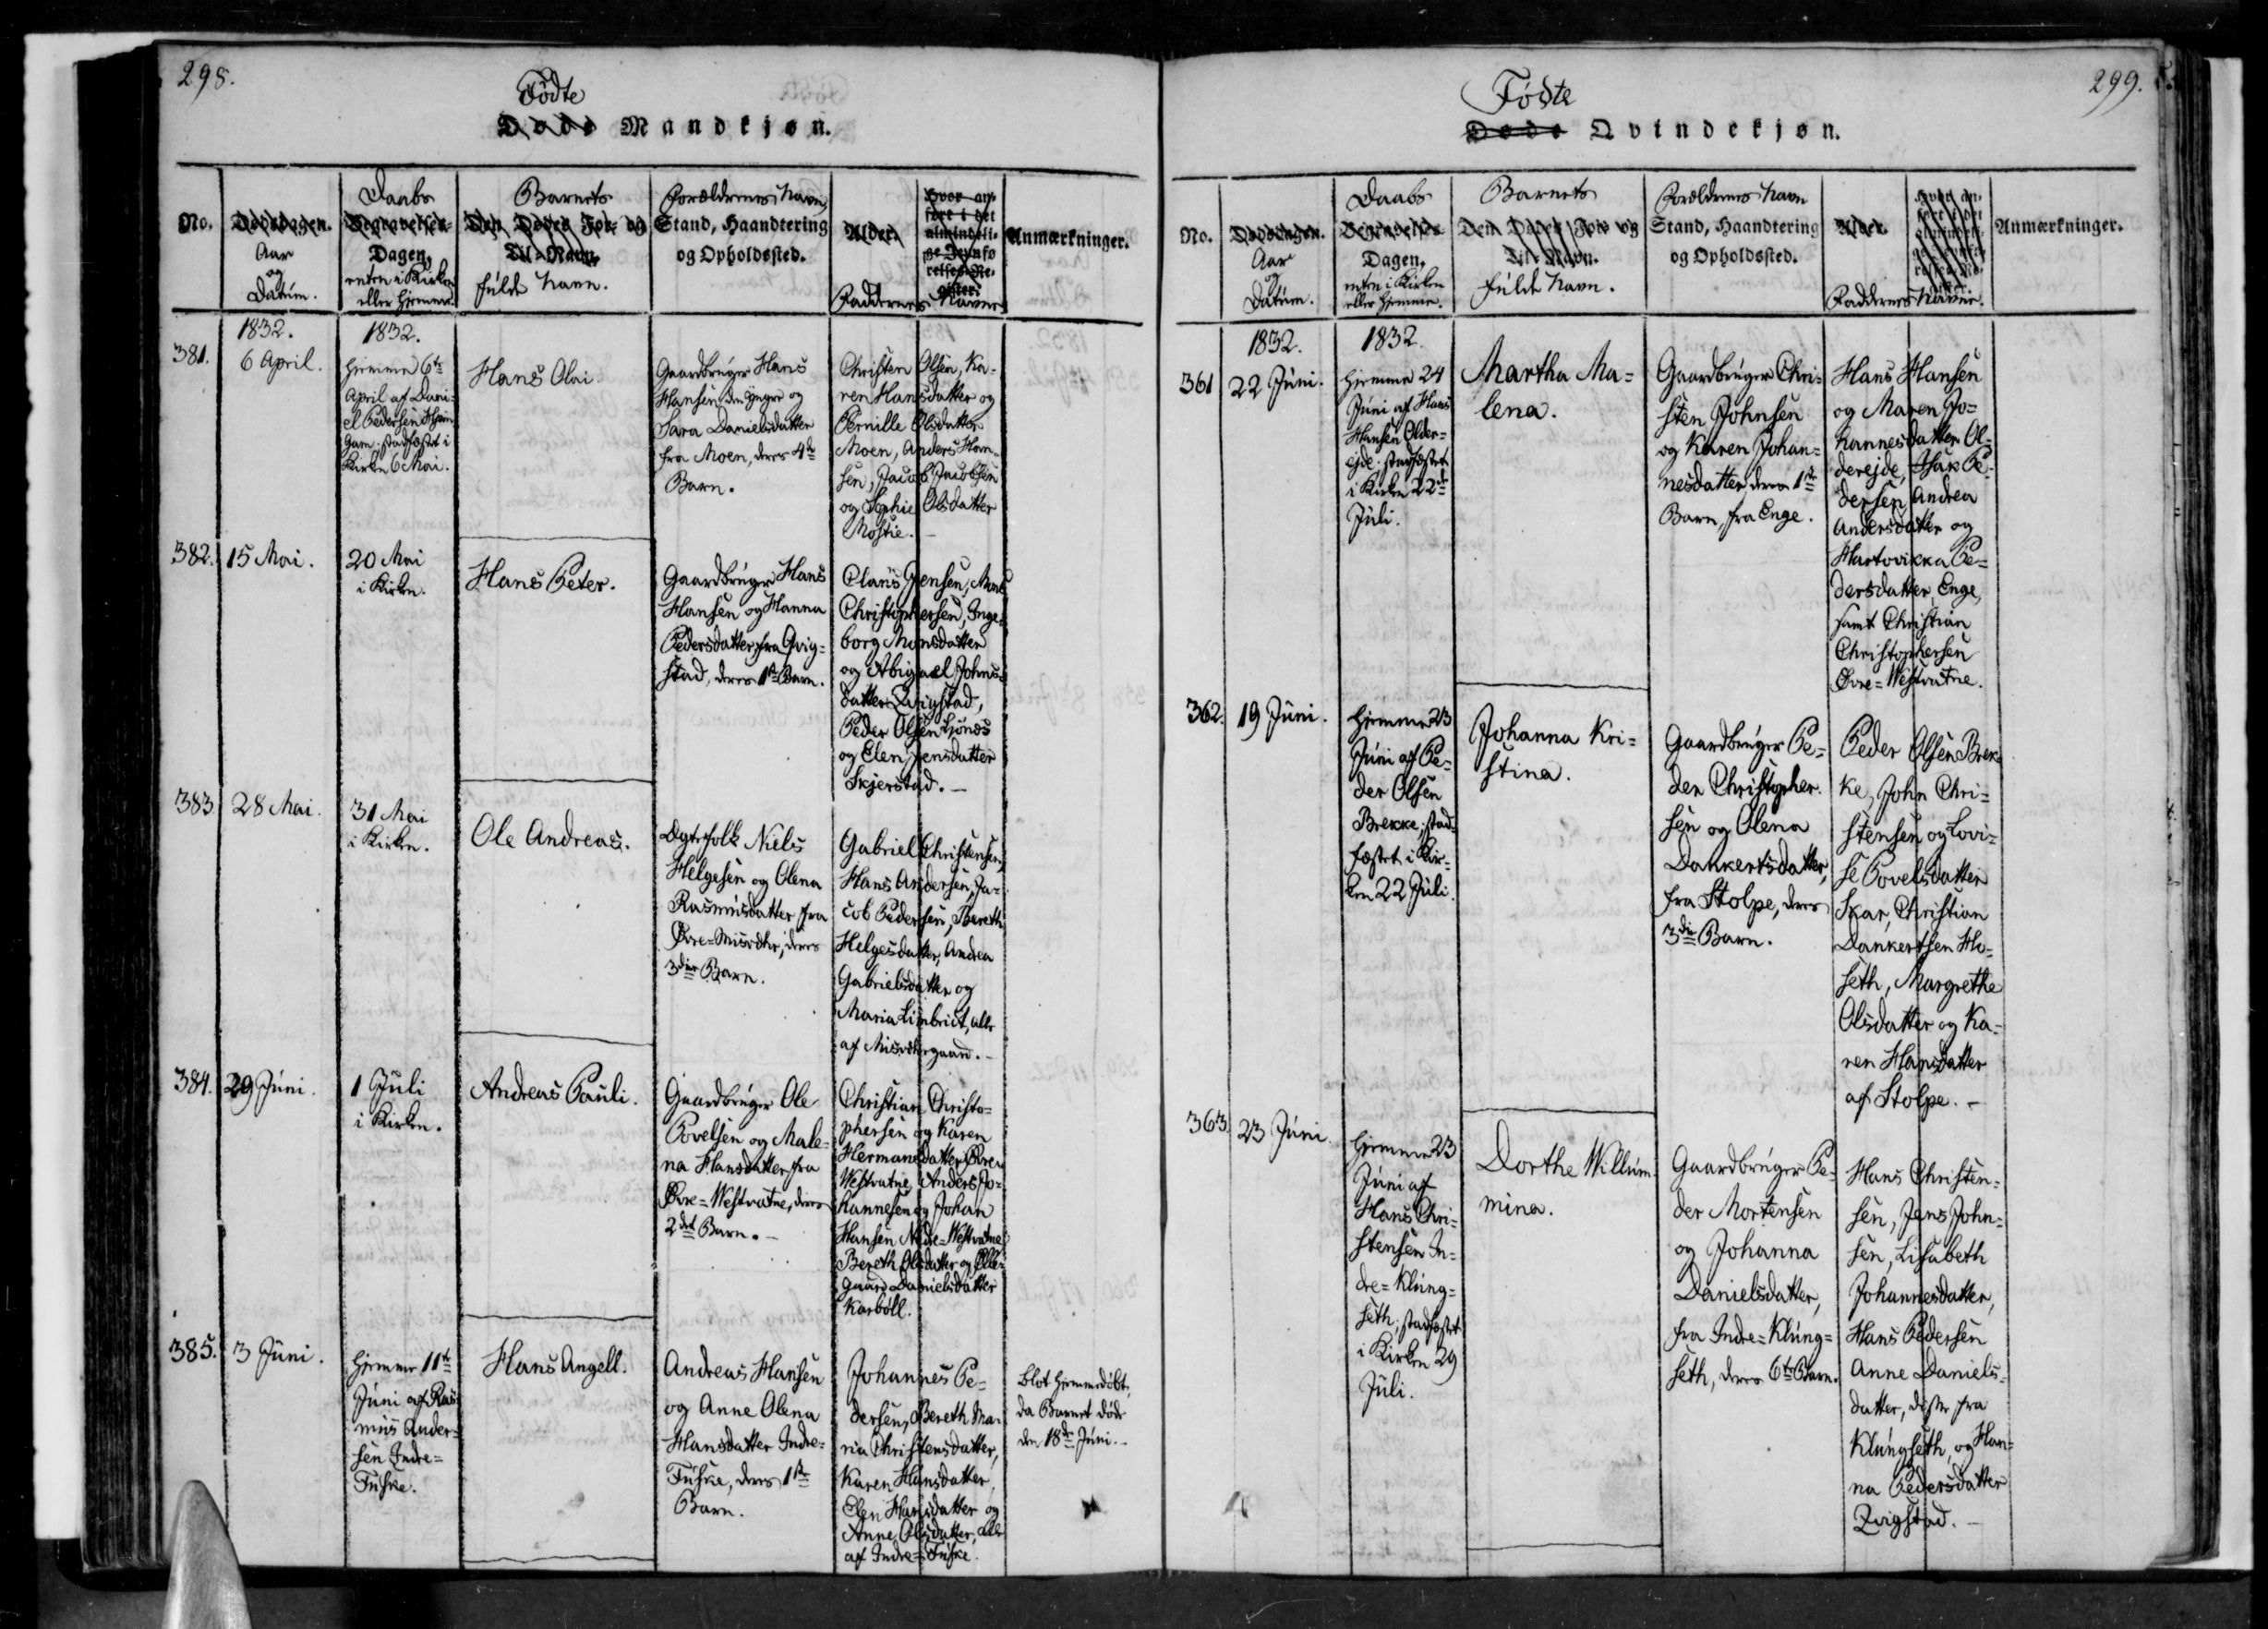 298.
Fødte
Døde Mandkjøn.
No.
Dødsdagen.
Aar
og
Datum.
Daabs
Begravelses-
Dagen,
enten i Kirken
eller hjemme.
Barnets
Den Dødes For- og
Til-Navn.
fulde Navn.
Forældrenes Navn
Stand, Haandtering
og Opholdssted.
Alder.
Hvor an-
ført i det
almindeli-
ge Jevnfø-
relses-Re-
gister.
Faddernes Navne
Anmærkninger.
381.
1832.
6 April.
1832.
Hjemme 6te
April af Dani-
el Pedersen
stadfæstet i
Kirken 6 Mai.
Hans Olai
Gaardbruger Hans
Hansen den yngre og
Sara Danielsdatter
fra Moen, deres 4de
Barn.
Christen Olsen, Ka-
ren Hansdatter og
Pernille Olsdatter
Moen, Anders Han-
sen, Jacob Jacobsen
og Sophie Olsdatter
Mostie.
382.
15 Mai.
20 Mai
i Kirken.
Hans Peter.
Gaardbruger Hans
Hansen og Hanna
Pedersdatter, fra Qvig-
stad, deres 1ste Barn.
Claus Jensen, Mons
Christophersen, Inge-
borg Monsdatter
og Abigael Johns-
datter Qvigstad,
Peder Olsen Lønds
og Elen Jensdatter
Skjerstad. —
383.
28 Mai.
31 Mai
i Kirken.
Ole Andreas.
Ægtefolk Niels
Helgesen og Olena
Rasmusdatter fra
Øvre-Misvær, deres
3die Barn.
Gabriel Christensen,
Hans Andersen, Ja-
cob Pedersen, Bereth
Helgesdatter, Andrea
Gabrielsdatter og
Maria Limbrict, alle
af Misværgaard. —
384.
29 Juni.
1 Juli
i Kirken.
Andreas Pauli.
Gaardbruger Ole
Povelsen og Male-
na Hansdatter fra
Øvre-Westvatne, deres
2det Barn. —
Christian Christo-
phersen og Karen
Hermansdatter Øvre-
Westvatne, Anders Jo-
hannesen og Johan
Hansen Nedre-Westvatne
Bereth Olsdatter og Elle-
gaard Danielsdatter
Karbøll.
385.
3 Juni.
Hjemme 11te
Juni af Ras-
mus Ander-
sen Indre-
Fuske.
Hans Angell.
Andreas Hansen
og Anne Olena
Hansdatter Indre-
Fuske, deres 1ste
Barn.
Johannes Pe-
dersen, Bereth Ma-
ria Christensdatter,
Karen Hansdatter,
Elen Hansdatter og
Anne Olsdatter, alle
af Indre-Fuske.
Blot hjemmedøbt,
da Barnet døde
den 18de Juni. —
299.
Fødte
Døde Qvindekjøn.
No.
Dødsdagen.
Aar
og
Datum.
Daabs
Begravelses-
Dagen,
enten i Kirken
eller hjemme.
Barnets
Den Dødes For- og
Til-Navn.
fulde Navn.
Forældrenes Navn
Stand, Haandtering
og Opholdssted.
Alder.
Hvor an-
ført i det
almindeli-
ge Jevnfø-
relses-Re-
gister.
Faddernes Navne.
Anmærkninger.
361
1832.
22 Juni.
1832.
Hjemme 24
Juni af Hans
Hansen Older-
ejde, stadfæstet
i Kirken 22de
Juli.
Martha Ma-
lena.
Gaardbruger Chri-
sten Johnsen
og Karen Johan-
nesdatter, deres 1ste
Barn, fra Enge.
Hans Hansen
og Maren Jo-
hannesdatter Ol-
derejde, Isak Pe-
dersen, Andrea
Andersdatter og
Hartvikka Pe-
dersdatter, Enge,
samt Christian
Christophersen
Øvre-Westvatne.
362.
19 Juni.
Hjemme 23
Juni af Pe-
der Olsen
Brekke, stad-
fæstet i Kir-
ken 22 Juli.
Johanna Kri-
stina.
Gaardbruger Pe-
der Christopher-
sen og Olena
Dankertsdatter,
fra Stolpe, deres
3die Barn.
Peder Olsen Brek-
ke, John Chri-
stensen og Lovi-
se Povelsdatter
Skar, Christian
Dankertsen Ho-
seth, Margrethe
Olsdatter og Ka-
ren Hansdatter
af Stolpe. —
363.
23 Juni.
Hjemme 23
Juni af
Hans Chri-
stensen In-
dre-Klung-
seth, stadfæstet
i Kirken 29
Juli.
Dorthe Willum-
mina.
Gaardbruger Pe-
der Mortensen
og Johanna
Danielsdatter,
fra Indre-Klung-
seth, deres 6te Barn.
Hans Christen-
sen, Jens John-
sen, Lisabeth
Johannesdatter,
Hans Pedersen
Anne Daniels-
datter, disse fra
Klungseth, og Han-
na Pedersdatter
Qvigstad. —